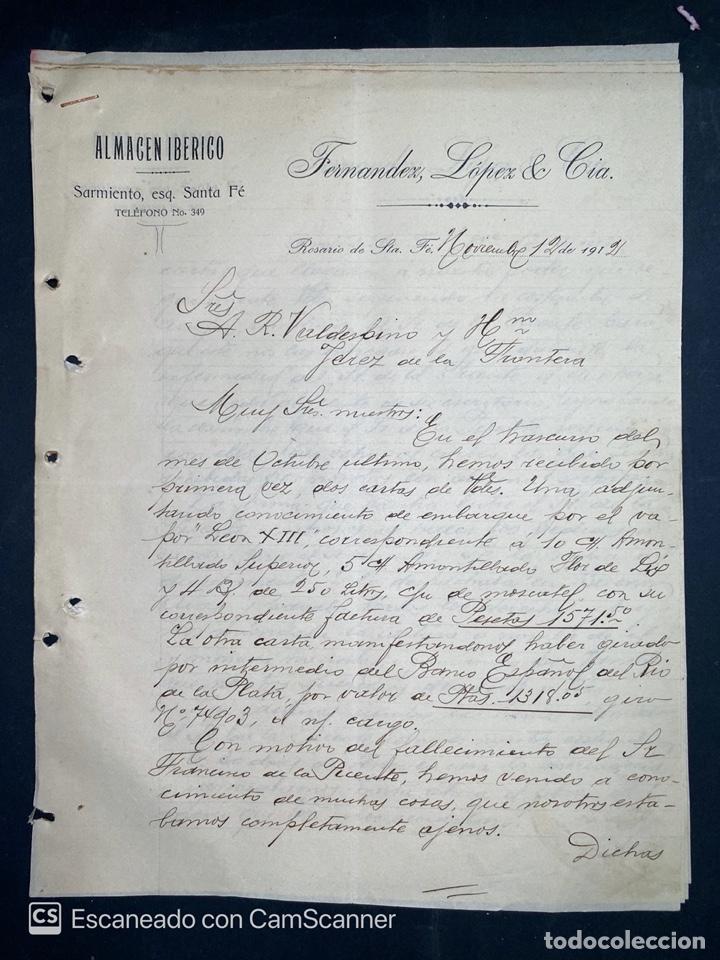 ALMACEN IBERICO
Sarmiento, esq. Santa Fé
TELÉFONO No. 349
Fernandez, López & Cia.
Rosario de Sta. Fé, Noviembre 12 de 1912
Sres
A. R. Valdespino y Hno
Jerez de la Frontera
Muy Sres. nuestros:
En el trascurso del
mes de Octubre ultimo, hemos recibido por
primera vez, dos cartas de Vdes. Una adjun-
tando conocimiento de embarque por el va-
por "Leon XIII", correspondiente á 10 c/ Amon-
tillado Superior, 5 c/ Amontillado Flor de
y 4 B/ de 250 Litros, c/u de moscatel con su
correspondiente factura de Pesetas 1571.50
La otra carta, manifestandonos haber girado
por intermedio del Banco Español del Rio
de la Plata, por valor de Ptas. 1318.05 giro
Nº 74903, a n/ cargo.
Con motivo del fallecimiento del Sr
Francisco de la Puente, hemos venido a cono-
cimiento de muchas cosas, que nosotros esta-
bamos completamente ajenos.
Dichas
CS Escaneado con CamScanner
todocoleccion